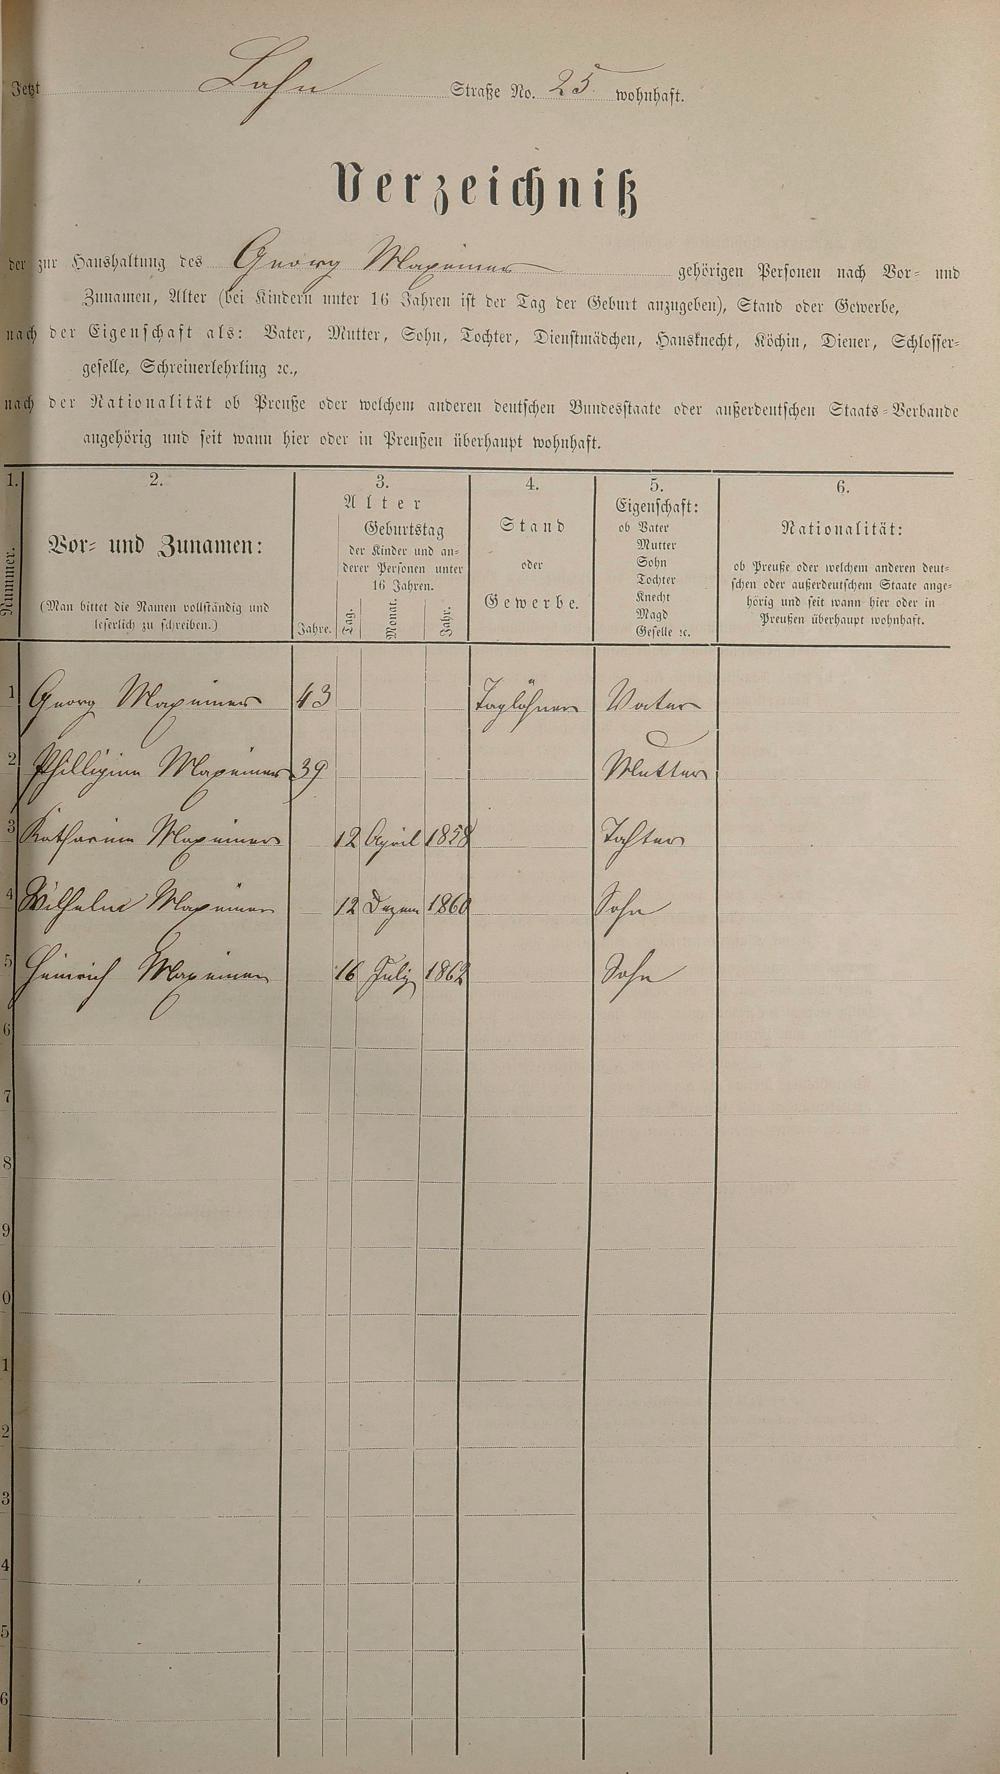 Jetzt Lahn Straße No. 25 wohnhaft.
Verzeichniß
der zur Haushaltung des Georg Maxeiner gehörigen Personen nach Vor- und
Zunamen, Alter (bei Kindern unter 16 Jahren ist der Tag der Geburt anzugeben), Stand oder Gewerbe,
nach der Eigenschaft als: Vater, Mutter, Sohn, Tochter, Dienstmädchen, Hausknecht, Köchin, Diener, Schlosser-
geselle, Schreinerlehrling ꝛc.,
nach der Nationalität ob Preuße oder welchem anderen deutschen Bundesstaate oder außerdeutschen Staats-Verbande
angehörig und seit wann hier oder in Preußen überhaupt wohnhaft.
1.
Nummer.
2.
Vor- und Zunamen:
(Man bittet die Namen vollständig und
leserlich zu schreiben.)
3.
Alter
Jahre.
Geburtstag
der Kinder und an-
derer Personen unter
16 Jahren.
Tag.
Monat.
Jahr.
4.
Stand
oder
Gewerbe.
5.
Eigenschaft:
ob Vater
Mutter
Sohn
Tochter
Knecht
Magd
Geselle ꝛc.
6.
Nationalität:
ob Preuße oder welchem anderen deut-
schen oder außerdeutschem Staate ange-
hörig und seit wann hier oder in
Preußen überhaupt wohnhaft.
1 Georg Maxeiner 43 Taglöhner Vater
2 Phillipine Maxeiner 39 Mutter
3 Katharina Maxeiner 12 April 1858 Tochter
4 Wilhelm Maxeiner 12 Dezem 1860 Sohn
5 Heinrich Maxeiner 16 July 1862 Sohn
6
7
8
9
0
1
2
3
4
5
6